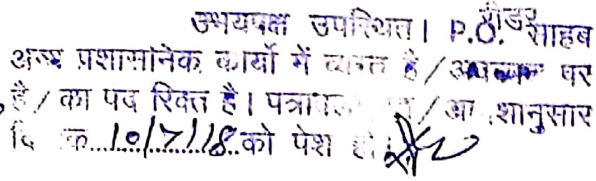 उभयपक्ष उपस्थित। P.O. साहब
अन्य प्रशासनिक कार्यो में व्यस्त है/अवकाश पर
है/का पद रिक्त है। पत्रावली /आ शानुसार
दि क 10/7/18 को पेश हो